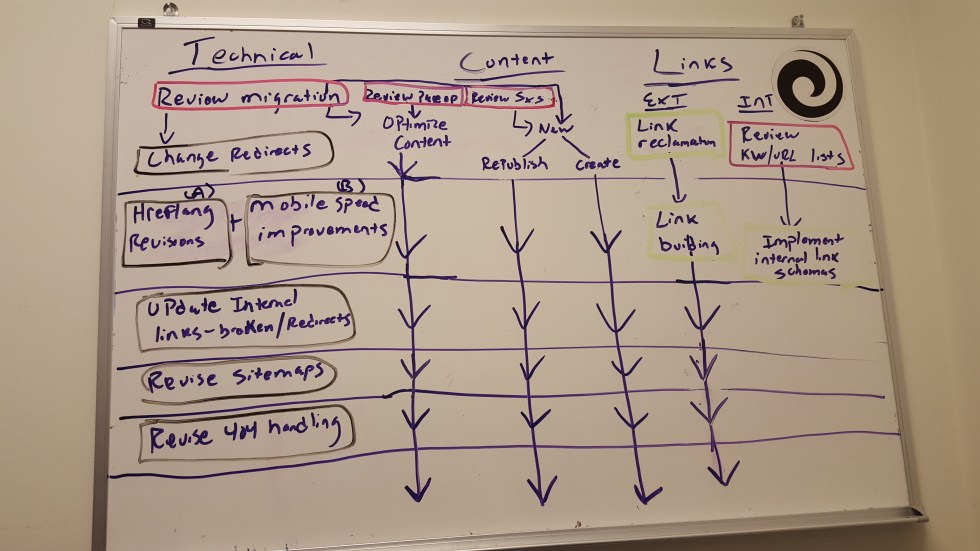 Technical
Content
Links
Review migration
Review
Review SxS
EXT
INT
Optimize
Content
New
Link
reclamation
Review
KW/URL lists
Change Redirects
Republish
Create
(A)
(B)
Hreflang
Revisions
+
Mobile Speed
improvements
Link
building
Implement
internal link
schemas
Update Internal
links-broken/Redirects
Revise Sitemaps
Revise 404 handling